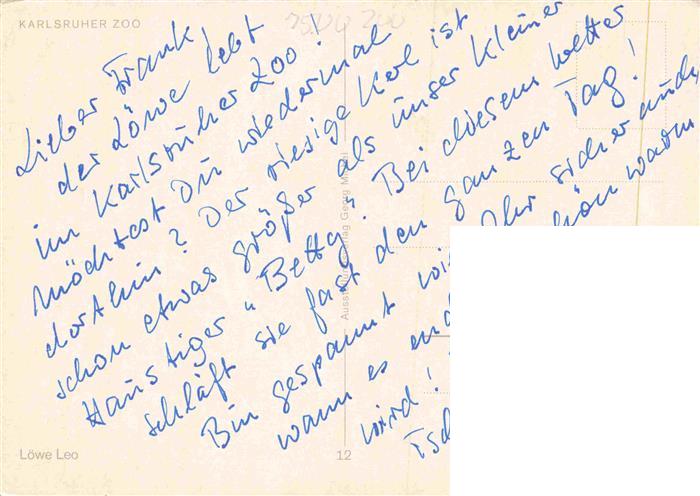 KARLSRUHER ZOO
75.00 ZOO
Lieber Frank
der Löwe lebt
im Karlsruher Zoo!
Möchtest Du wiedermal
dorthin? Der riesige Kerl ist
schon etwas größer als unser kleiner
Haustiger "Betty". Bei diesem Wetter
schläft sie fast den ganzen Tag!
Bin gespannt Ihr sicher auch,
wann es schön warm
wird!
Ausstellungsverlag Georg
Löwe Leo
12